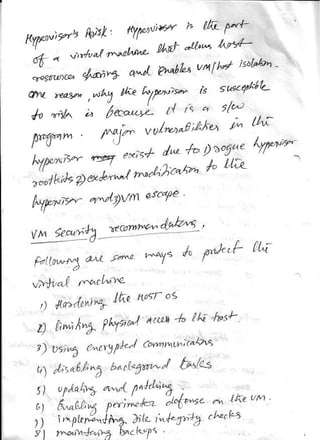 Hypervisor's Risk: Hypervisor is the part
of a virtual machine that allows host
resources sharing and enables VM/host isolation.
one reason, why the hypervisor is susceptible
to risk is because it is a s/w
program. Major vulnerabilities in the
hypervisor exist due to 1) rogue hypervisor
rootkits 2) external modification to the
hypervisor and 3) VM escape.
VM security recommendations.
Following are some ways to protect the
virtual machine
1) Hardening the HOST OS
2) limiting physical access to the host
3) using encrypted communications
4) disabling background tasks
5) updating and patching
6) Enabling perimeter defense on the VM.
7) implementing file integrity checks
8) maintaining backups.